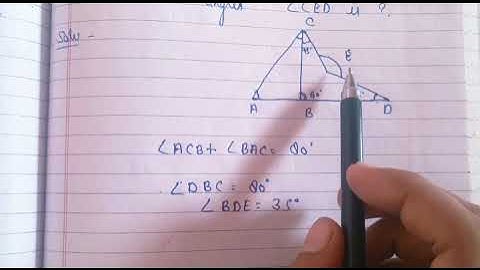 ∠CED is ?
Soln -
C
45°
E
90°
A
B
D
∠ACB + ∠BAC = 90°
∠DBC = 90°
∠BDE = 35°